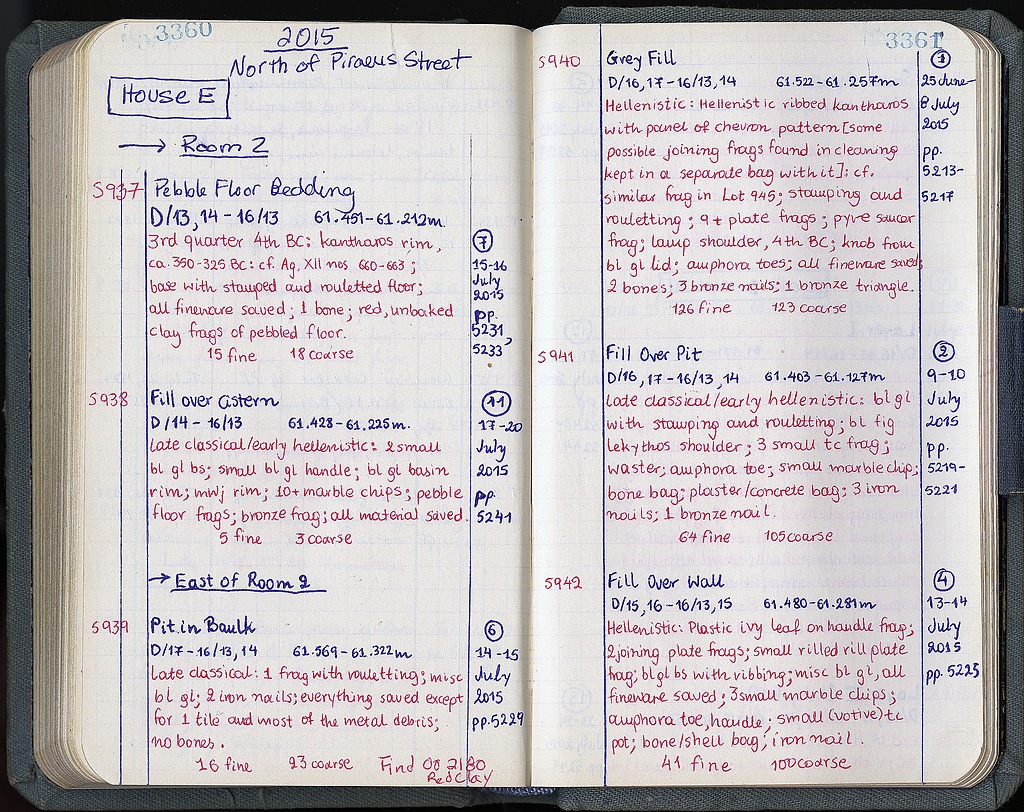 3360
2015
North of Piraeus Street
House E
→ Room 2
5937
Pebble Floor Bedding
D/13,14-16/13 61.451-61.212m.
3rd quarter 4th BC: kantharos rim,
ca. 350-325 BC: cf. Ag. XII nos 660-663;
base with stamped and rouletted floor;
all fineware saved; 1 bone; red, unbaked
clay frags of pebbled floor.
15 fine 18 coarse
7
15-16
July
2015
pp.
5231,
5233
5938
Fill over cistern
D/14-16/13 61.428-61.225m.
late classical/early hellenistic: 2 small
bl gl bs; small bl gl handle; bl gl basin
rim; mwj rim; 10+ marble chips; pebble
floor frags; bronze frag; all material saved.
5 fine 3 coarse
11
17-20
July
2015
pp.
5241
→ East of Room 2
5939
Pit in Baulk
D/17-16/13,14 61.569-61.322m
late classical: 1 frag with rouletting; misc
bl gl; 2 iron nails; everything saved except
for 1 tile and most of the metal debris;
no bones.
16 fine 23 coarse Find 00 2180
Red Clay
6
14-15
July
2015
pp. 5229
3361
5940
Grey Fill
D/16,17-16/13,14 61.522-61.257m
Hellenistic: Hellenistic ribbed kantharos
with panel of chevron pattern [some
possible joining frags found in cleaning
kept in a separate bag with it]: cf.
similar frag in Lot 945; stamping and
rouletting; 9+ plate frags; pyre saucer
frag; lamp shoulder, 4th BC; knob from
bl gl lid; amphora toes; all fineware saved;
2 bones; 3 bronze nails; 1 bronze triangle.
126 fine 123 coarse
1
25 June-
8 July
2015
pp.
5213-
5217
5941
Fill Over Pit
D/16,17-16/13,14 61.403-61.127m
late classical/early hellenistic: bl gl
with stamping and rouletting; bl fig
lekythos shoulder; 3 small tc frag;
waster; amphora toe; small marble chip;
bone bag; plaster/concrete bag; 3 iron
nails; 1 bronze nail.
64 fine 105 coarse
2
9-10
July
2015
pp.
5219-
5221
5942
Fill Over Wall
D/15,16-16/13,15 61.480-61.281m
Hellenistic: Plastic ivy leaf on handle frag;
2 joining plate frags; small rilled rill plate
frag; bl gl bs with ribbing; misc bl gl, all
fineware saved; 3 small marble chips;
amphora toe, handle; small (votive) tc
pot; bone/shell bag; iron nail.
41 fine 100 coarse
4
13-14
July
2015
pp. 5225